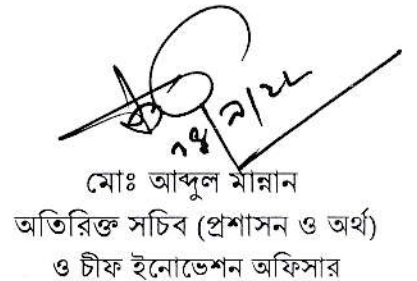 মোঃ আব্দুল মান্নান
অতিরিক্ত সচিব (প্রশাসন ও অর্থ)
ও চীফ ইনোভেশন অফিসার